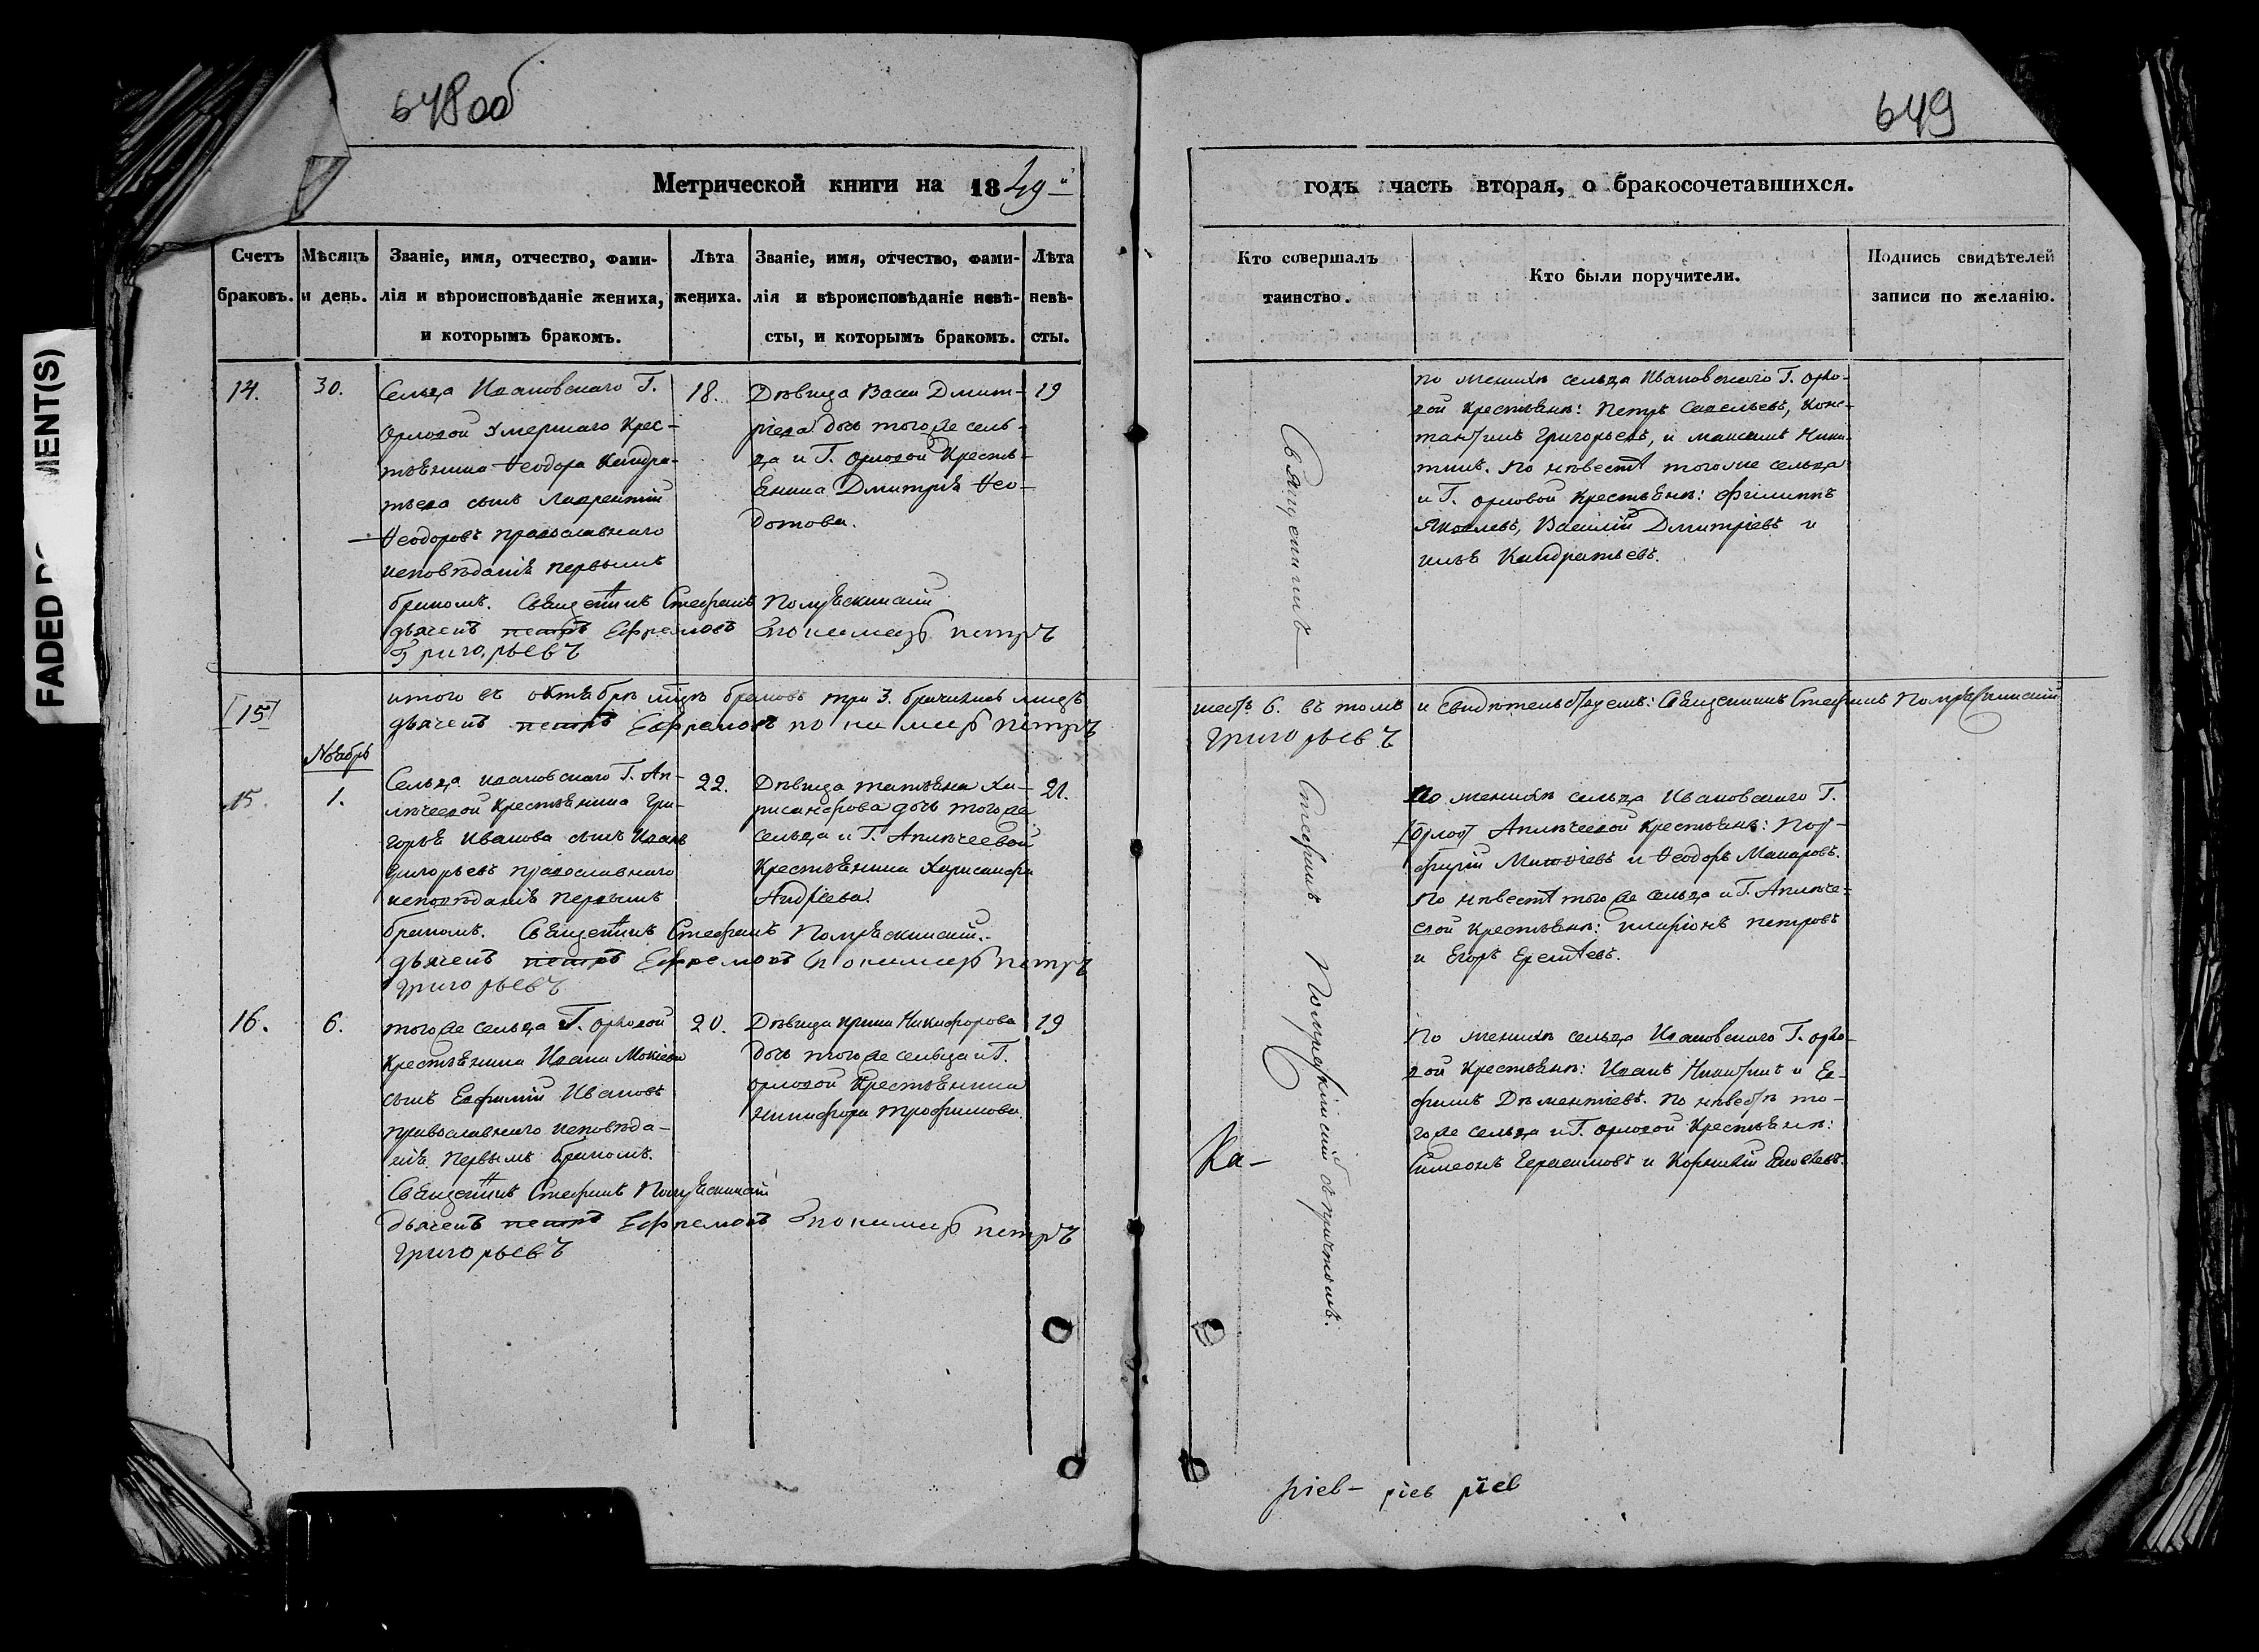 648 об
649
FADED D MENT(S)
Метрической книги на 1849й
годъ часть вторая, о бракосочетавшихся.
Счетъ браковъ.
Мѣсяцъ и день.
Званіе, имя, отчество, фами-
лія и вѣроисповѣданіе жениха,
и которымъ бракомъ.
Лѣта
жениха.
Званіе, имя, отчество, фами-
лія и вѣроисповѣданіе невѣ-
сты, и которымъ бракомъ.
Лѣта
невѣ-
сты.
Кто совершалъ
таинство.
Кто были поручители.
Подпись свидѣтелей
записи по желанію.
14.
30.
Сельца Ивановскаго Г.
Орловой умершаго Крес-
тьянина Ѳеодора Кандра-
тьева сынъ Лаврентій
Ѳеодоровъ православнаго
исповѣданія первымъ
бракомъ. Священникъ Стефанъ
дьячекъ петръ Ефремовъ
Григорьевъ
18.
Дѣвица Васса Дмит-
ріева дочь того же сель-
ца и Г. Орловой Кресть-
янина Дмитрія Ѳео-
дотова.
пономарь петръ
19
Священникъ Стефанъ
съ причтомъ.
по женихѣ сельца Ивановскаго Г. Орло-
вой Крестьяне: Петръ Савельевъ, Конс-
тантинъ Григорьевъ, и Максимъ Ники-
тинъ. По невѣстѣ того же сельца
и Г. Орловой Крестьяне: Филиппъ
Яковлевъ, Василій Дмитріевъ и
Илья Кандратьевъ.
15
итого въ октябрѣ мцѣ браковъ три 3. брачились лицъ
шесть 6. въ томъ и свидѣтельствуемъ: Священникъ Стефанъ
дьячекъ петръ Ефремовъ пономарь петръ
Григорьевъ
Ноябрь
15.
1.
Сельца Ивановскаго Г. Ап-
крестьянина Гри-
горья Иванова сынъ Иванъ
Григорьевъ православнаго
исповѣданія первымъ
бракомъ. Священникъ Стефанъ
дьячекъ петръ Ефремовъ
Григорьевъ
22.
Дѣвица Татьяна Хри-
рисанфова дочь того же
сельца и Г.
Крестьянина Хрисанфа
Андреева.
пономарь петръ
21.
По женихѣ сельца Ивановскаго Г.
Крестьяне: Пор-
фирій и Ѳеодоръ Макаровъ.
По невѣстѣ того же сельца и Г.
Крестьяне: Иларіонъ Петровъ
и Егоръ
16.
6.
того же сельца Г. Орловой
Крестьянина Ивана Мокіева
сынъ Евфимій Ивановъ
православнаго исповѣда-
нія первымъ бракомъ.
Священникъ Стефанъ
дьячекъ петръ Ефремовъ
Григорьевъ
20.
Дѣвица Ирина Никифорова
дочь того же сельца и Г.
Орловой Крестьянина
Никифора Трофимова.
пономарь петръ
19
По женихѣ сельца Ивановскаго Г. Орло-
вой Крестьяне: Иванъ Никитинъ и Ев-
фимъ Дементіевъ. По невѣстѣ то-
го же сельца и Г. Орловой Крестьяне:
Симеонъ Герасимовъ и Корнилій
Ка-
ріев- ріев ріев